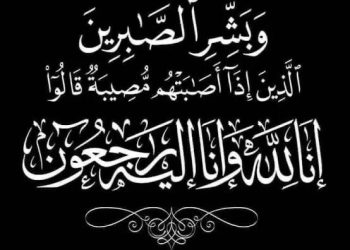 وَبَشِّرِ الصَّابِرِينَ
الَّذِينَ إِذَا أَصَابَتْهُم مُّصِيبَةٌ قَالُوا۟
إنا لله وإنا إليه راجعون